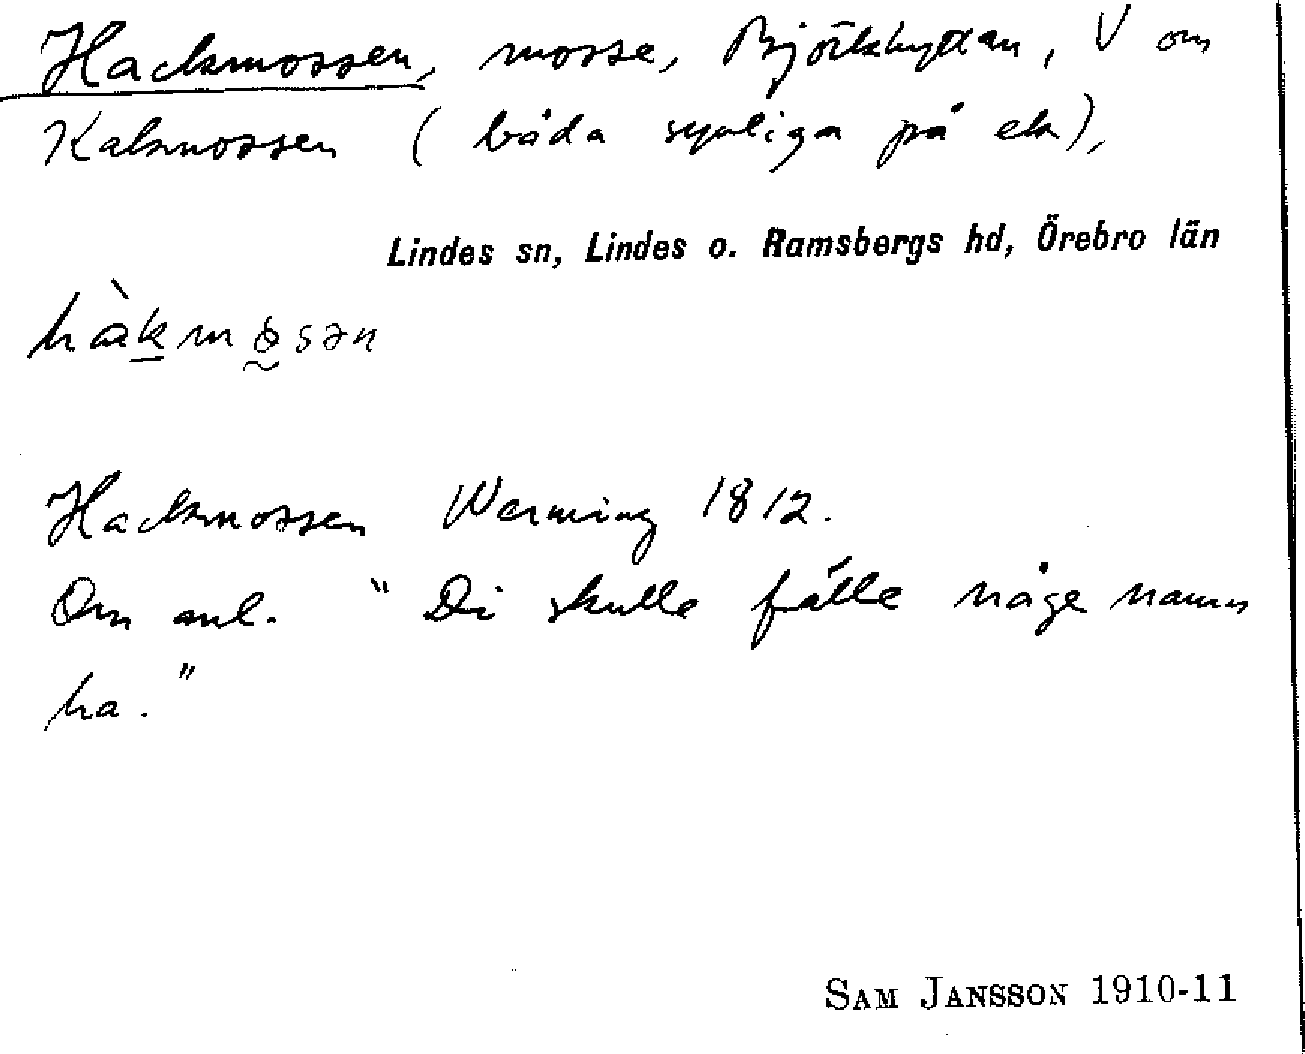 Hackmossen, mosse, Björkhyttan, V om
Kalkmossen (båda synliga på ek),
Lindes sn, Lindes o. Ramsbergs hd, Örebro län
hàkmɷsən
Hackmossen Werming 1812.
Om anl. "Di skulle fälle någe namn
ha."
SAM JANSSON 1910-11